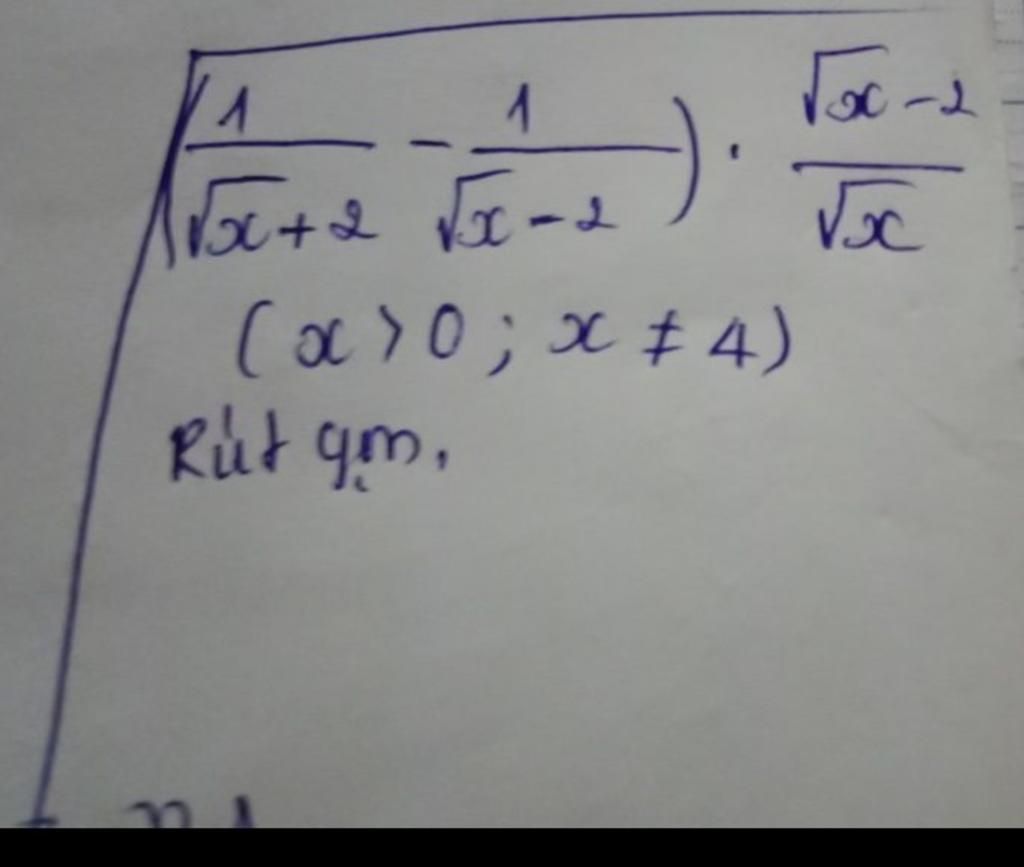 (1/(√x+2) - 1/(√x-2)) . (√x-2)/√x
(x>0; x≠4)
Rút gọn.